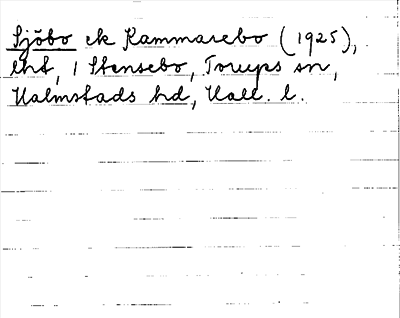 Sjöbo ek Kammarebo (1925),
lht, 1 Stensebo, Torups sn,
Halmstads hd, Hall. l.